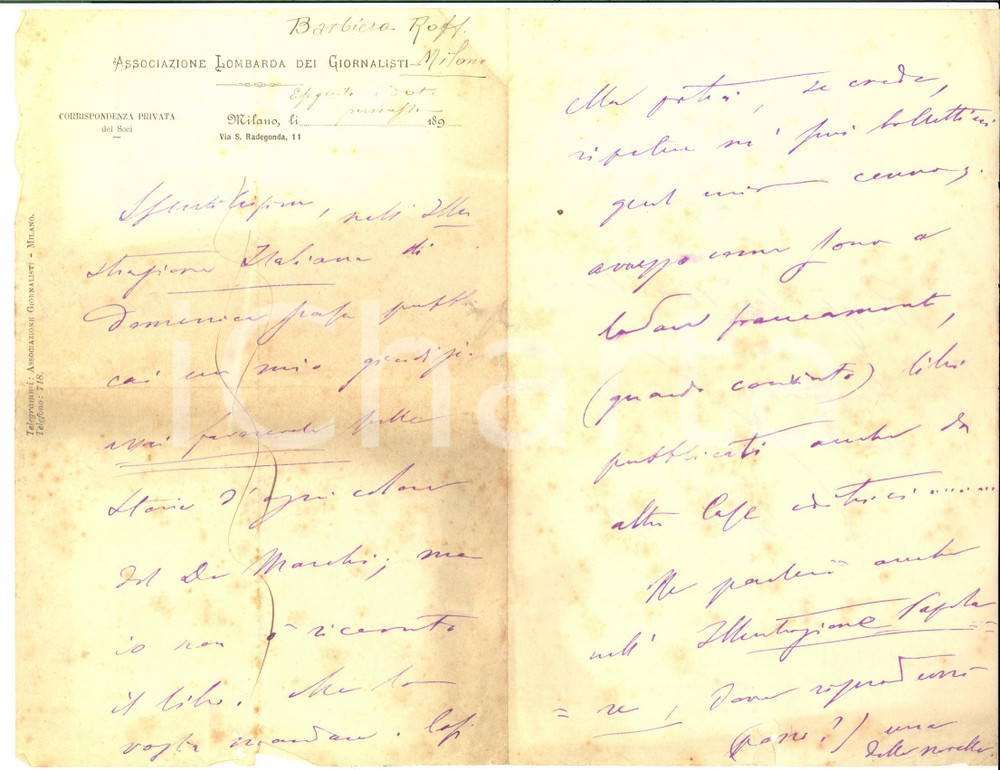 Barbiera Raff.
Milano
ASSOCIAZIONE LOMBARDA DEI GIORNALISTI
CORRISPONDENZA PRIVATA
dei Soci
Milano, li 189
Via S. Radegonda, 11
Telegrammi: ASSOCIAZIONE GIORNALISTI - MILANO.
Telefono: 718.
nell'Illu
strazione Italiana di
Domenica pubbli
cai un mio giudizio
assai sulle
Storie d'ogni colore
del De Marchi; ma
io non ò ricevuto
il libro. Me lo
voglia mandare. Così
Ella potrà, se crede,
bollettini
quel mio cenno,
avvezzo come sono a
lodare francamente,
(quando convinto) libri
pubblicati anche da
altre Case editrici ........
Ne parlerò anche
nell'Illustrazione Popola
= re, dove
(posso?) una
delle novelle.
iCharta